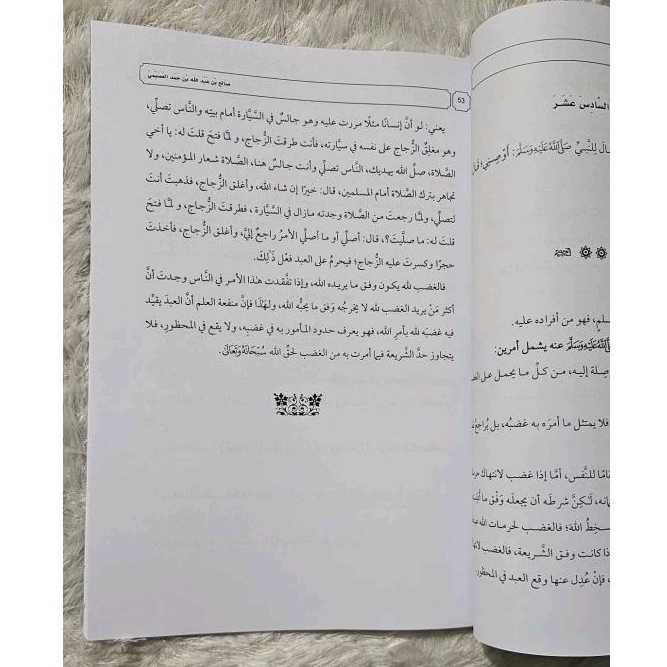 السادس عشر
ال للنبي صلى الله عليه وسلم: أوصني، قال
سلم، فهو من أفراده عليه.
الله عليه وسلم عنه يشمل أمرين:
صلة إليه، من كل ما يحمل على الغضب
فلا يمتثل ما أمره به غضبه، بل يراجع نفسه
امًا للنفس، أمَّا إذا غضب لانتهاك
انه، لكنَّ شرطه أن يجعله وَفْق ما
سخط الله؛ فالغضب لحرمات الله
ذا كانت وفق الشريعة، فالغضب
، فإنْ عُدِل عنها وقع العبد في المحظور.
صالح بن عبد الله بن حمد العصيمي
53
يعني: لو أنَّ إنسانًا مثلًا مررت عليه وهو جالسٌ في السَّيَّارة أمام بيته والنَّاس تصلِّي،
وهو مغلِقٌ الزُّجاج على نفسه في سيَّارته، فأنت طرقتَ الزُّجاج، و لمَّا فتحَ قلتَ له: يا أخي
الصَّلاة، صلِّ الله يهديك، النَّاس تصلِّي وأنت جالسٌ هنا، الصَّلاة شعار المؤمنين، ولا
تجاهر بترك الصَّلاة أمام المسلمين، قال: خيرًا إن شاء الله، وأغلق الزُّجاج، فذهبتَ أنتَ
لتصلِّي، ولمَّا رجعتَ من الصَّلاة وجدته مازال في السَّيَّارة ، فطرقتَ الزُّجاج، و لمَّا فتحَ
قلتَ له: ما صلَّيتَ؟، قال: أصلِّي أو ما أصلِّي الأمرُ راجعٌ إليَّ، وأغلق الزُّجاج، فأخذتَ
حجرًا وكسرتَ عليه الزُّجاج؛ فيحرمُ على العبد فعْل ذَٰلِكَ.
فالغضب لله يكون وفق ما يريده الله، وإذا تفَّقدت هذا الأمر في النَّاس وجدتَ أنَّ
أكثر مَنْ يريد الغضب لله لا يخرجُه وَفق ما يحبُّه الله، ولهٰذا فإنَّ منفعة العلم أنَّ العبدَ يقيِّد
فيه غضبَه لله بأمرِ الله، فهو يعرف حدود المأمور به في غضبه، ولا يقع في المحظور، فلا
يتجاوز حدَّ الشَّريعة فيما أمرت به من الغضب لحقِّ الله سُبْحَانَهُ وَتَعَالَى.